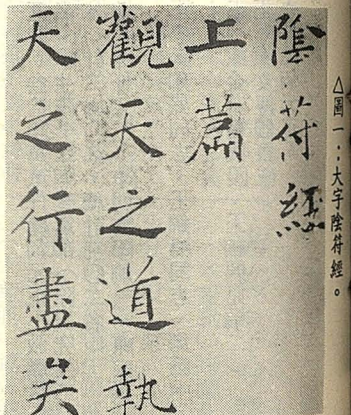 △圖一：大字陰符經。
陰符經
上篇
觀天之道執
天之行盡矣